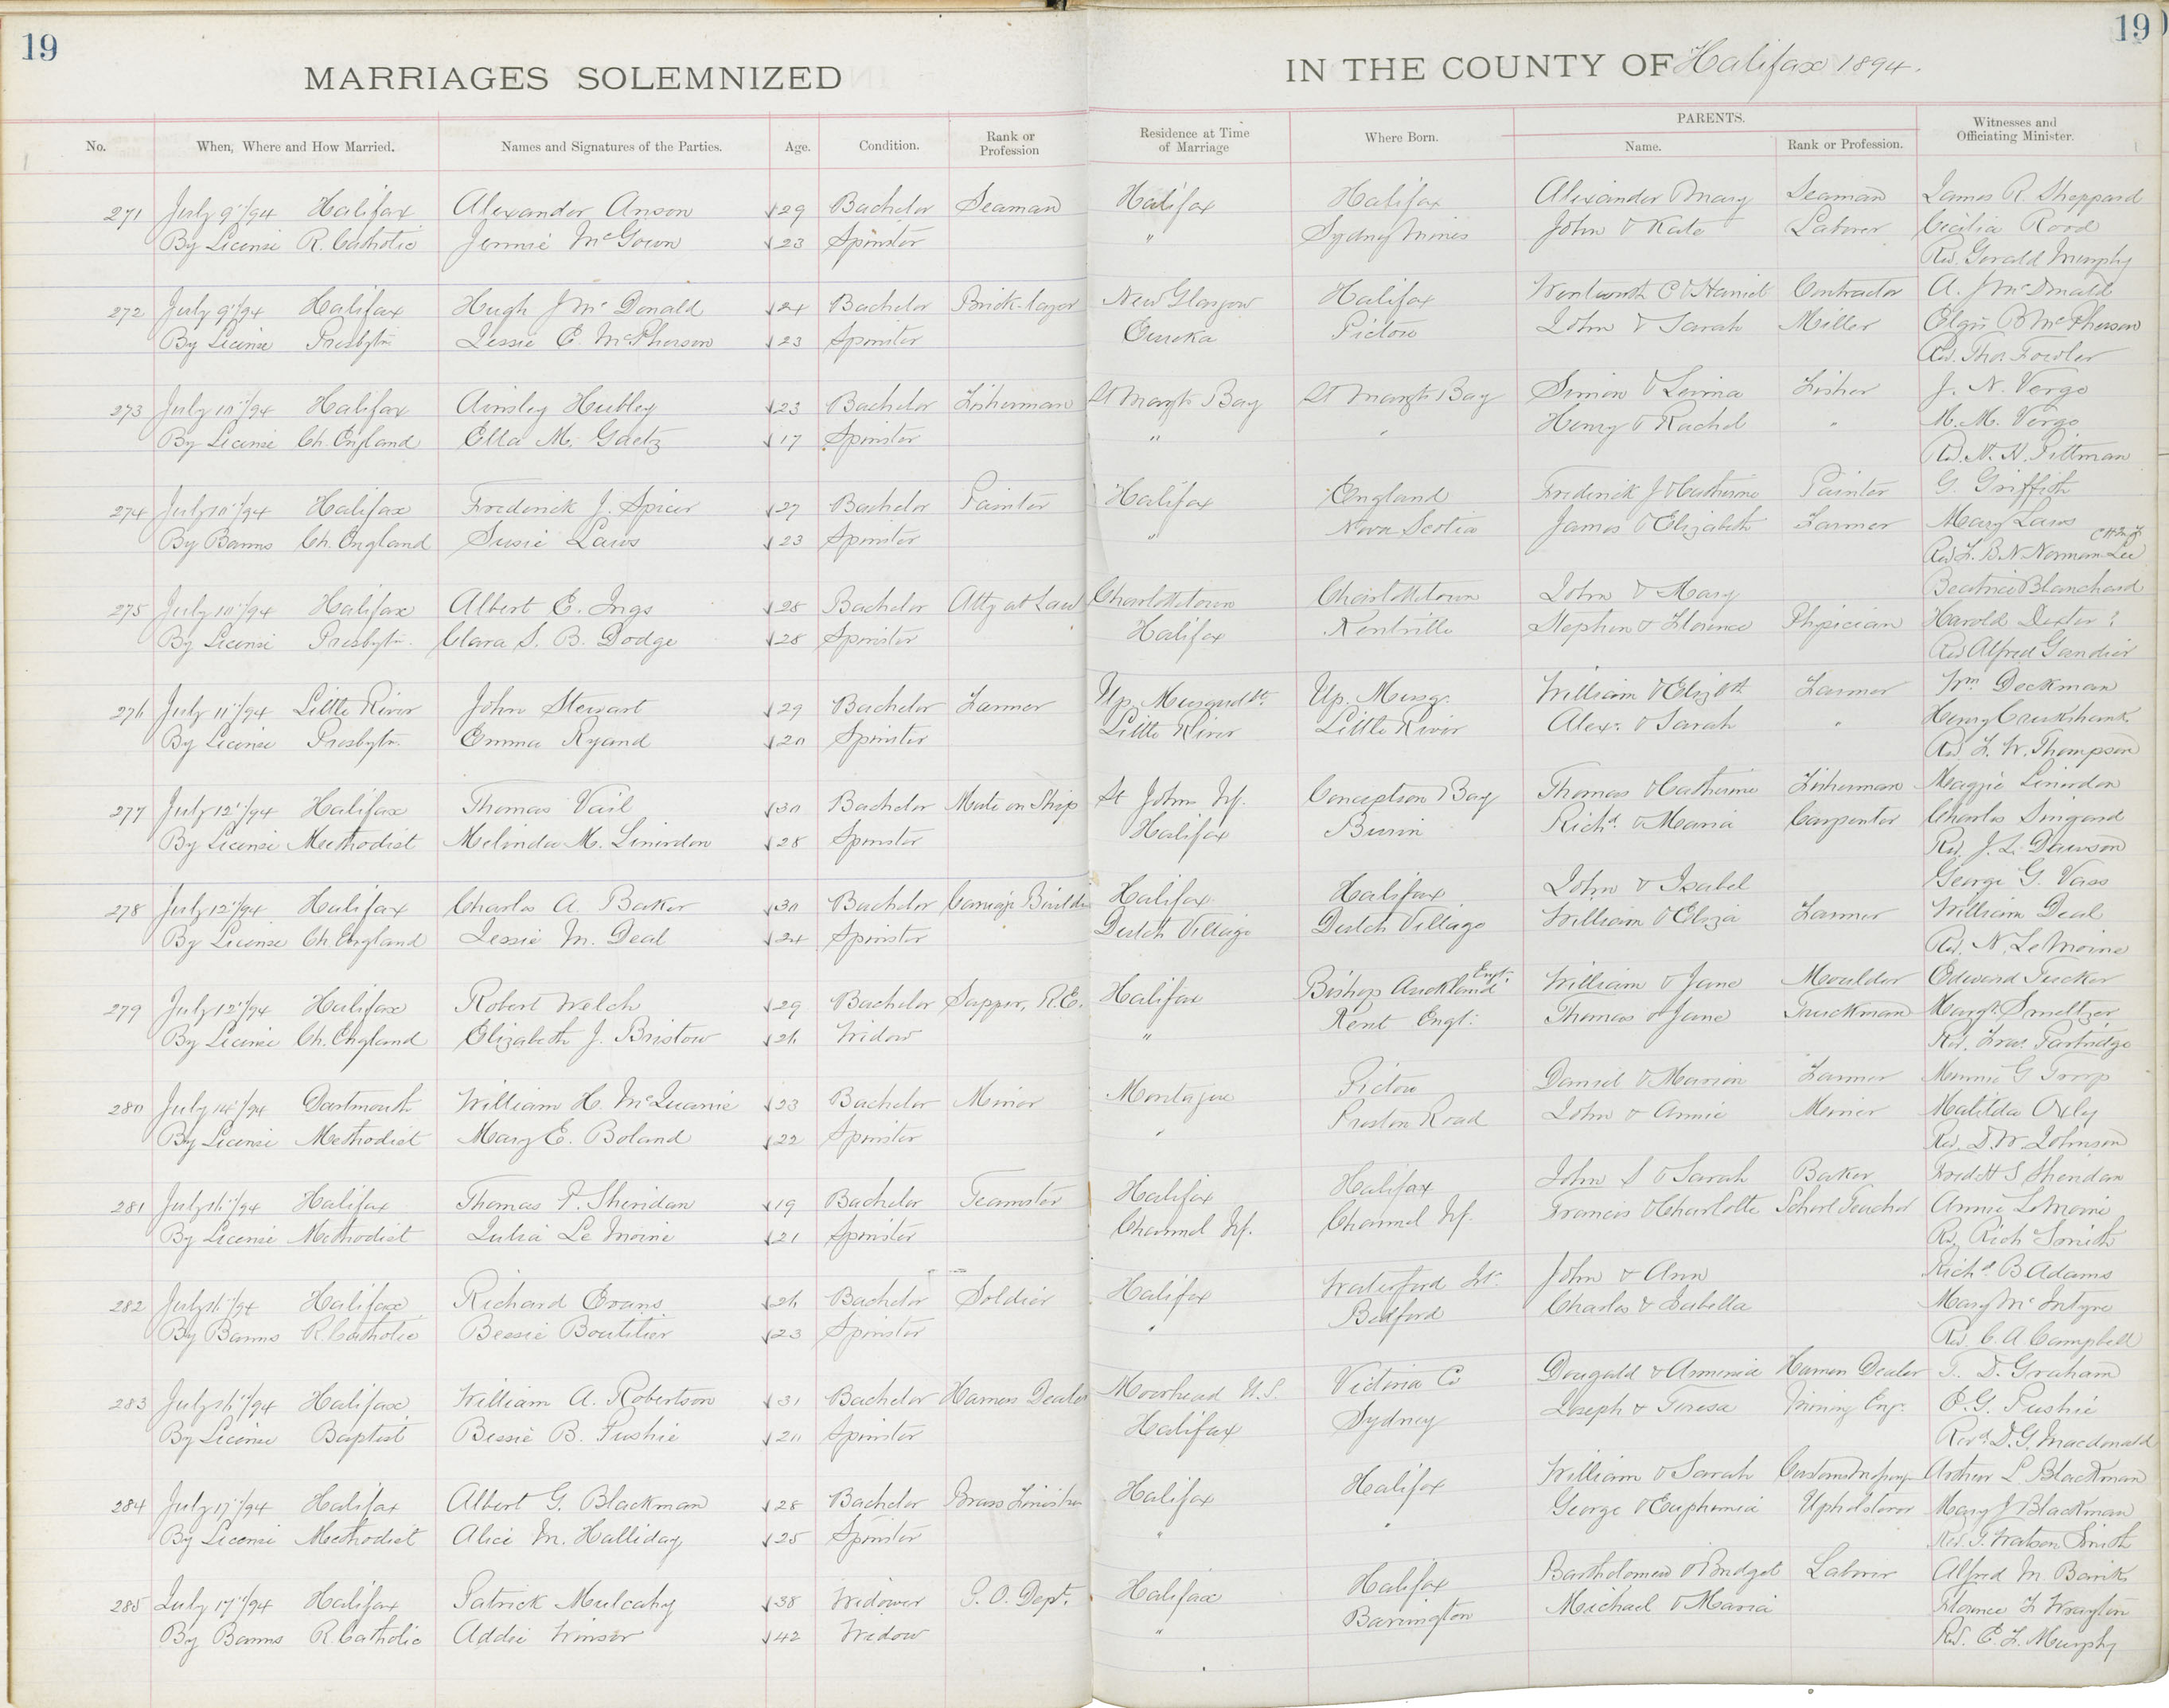 19
19
MARRIAGES SOLEMNIZED IN THE COUNTY OF Halifax 1894.
No. When, Where and How Married. Names and Signatures of the Parties. Age. Condition. Rank or Profession Residence at Time of Marriage Where Born. PARENTS. Name. Rank or Profession. Witnesses and Officiating Minister.
271 July 9"/94 Halifax Alexander Anson 29 Bachelor Seaman Halifax Halifax Alexander & Mary Seaman James R. Sheppard
By License R. Catholic Jennie McGown 23 Spinster " Sydney Mines John & Kate Laborer Cecilia Rood
Rev. Gerald Murphy
272 July 9"/94 Halifax Hugh J McDonald 24 Bachelor Brick-layer New Glasgow Halifax Wentworth C & Harriet Contractor A. J McDonald
By License Presbytn Jessie C. McPherson 23 Spinster Eureka Pictou John & Sarah Miller Elgin B McPherson
Rev. Thos. Fowler
273 July 10"/94 Halifax Ainsley Hubley 23 Bachelor Fisherman St Margts Bay St Margts Bay Simon & Levina Fisher J. N. Vergo
By License Ch. England Ella M. Gaetz 17 Spinster " " Henry & Rachel " M. M. Vergo
Rev. H. H. Pittman
274 July 10"/94 Halifax Frederick J. Spicer 27 Bachelor Painter Halifax England Frederick J & Catherine Painter G. Griffith
By Banns Ch. England Susie Laws 23 Spinster " Nova Scotia James & Elizabeth Farmer Mary Laws
Rev F. B. N. Norman-Lee
275 July 10"/94 Halifax Albert E. Ings 28 Bachelor Atty at Law Charlottetown Charlottetown John & Mary Beatrice Blanchard
By License Presbytn. Clara S. B. Dodge 28 Spinster Halifax Kentville Stephen & Florence Physician Harold Dexter?
Rev Alfred Gandier
276 July 11"/94 Little River John Stewart 29 Bachelor Farmer Up. Musquodt. Up. Musq. William & Elizbth Farmer Wm Deckman
By License Presbytn. Emma Ryand 20 Spinster Little River Little River Alexr. & Sarah " Henry Cruikshank
Rev F. W. Thompson
277 July 12"/94 Halifax Thomas Vail 30 Bachelor Mate on Ship St Johns Nf. Conception Bay Thomas & Catherine Fisherman Maggie Linirdon
By License Methodist Melinda M. Linirdon 28 Spinster Halifax Burin Richd. & Maria Carpenter Charles
Rev. J. L. Dawson
278 July 12"/94 Halifax Charles A. Baker 30 Bachelor Carriage Builder Halifax Halifax John & Isabel George G. Vass
By License Ch England Jessie M. Deal 24 Spinster Dutch Village Dutch Village William & Eliza Farmer William Deal
Rev. N. LeMoine
279 July 12"/94 Halifax Robert Welch 29 Bachelor Sapper, R.E. Halifax Bishop Auckland Engt. William & Jane Moulder Edward Tucker
By License Ch. England Elizabeth J. Bristow 26 Widow " Kent Engt. Thomas & Jane Truckman Margt. Smeltzer
Rev. Fras. Partridge
280 July 14"/94 Dartmouth William H. McQuarrie 23 Bachelor Miner Montague Pictou Daniel & Marion Farmer Minnie G Troop
By License Methodist Mary E. Boland 22 Spinster " Preston Road John & Annie Miner Matilda Oxley
Rev. D. W. Johnson
281 July 16"/94 Halifax Thomas P. Sheridan 19 Bachelor Teamster Halifax Halifax John S & Sarah Baker Fredk S Sheridan
By License Methodist Julia Le Moine 21 Spinster Channel Nf. Channel Nf. Francis & Charlotte School Teacher Annie LeMoine
Rev. Rich Smith
282 July 16"/94 Halifax Richard Evans 26 Bachelor Soldier Halifax Waterford Ir. John & Ann Richd. B Adams
By Banns R. Catholic Bessie Boutilier 23 Spinster " Bedford Charles & Isabella Mary McIntyre
Rev. C. A Campbell
283 July 16"/94 Halifax William A. Robertson 31 Bachelor Harness Dealer Moorhead U.S. Victoria Co Dougald & Armenia Harness Dealer T. D. Graham
By License Baptist Bessie B. Pushie 20 Spinster Halifax Sydney Joseph & Teresa Mining Engr. O. G. Pushie
Revd. D. G. Macdonald
284 July 17"/94 Halifax Albert G. Blackman 28 Bachelor Brass Finisher Halifax Halifax William & Sarah Arthur L Blackman
By License Methodist Alice M. Halliday 25 Spinster " " George & Euphemia Upholsterer Mary J Blackman
Rev. T. Watson Smith
285 July 17"/94 Halifax Patrick Mulcahy 38 Widower P. O. Dept. Halifax Halifax Bartholomew & Bridget Laborer Alfred M. Banks
By Banns R. Catholic Addie Winsor 42 Widow " Barrington Michael & Maria Florence F Wrayton
Rev. E. F. Murphy